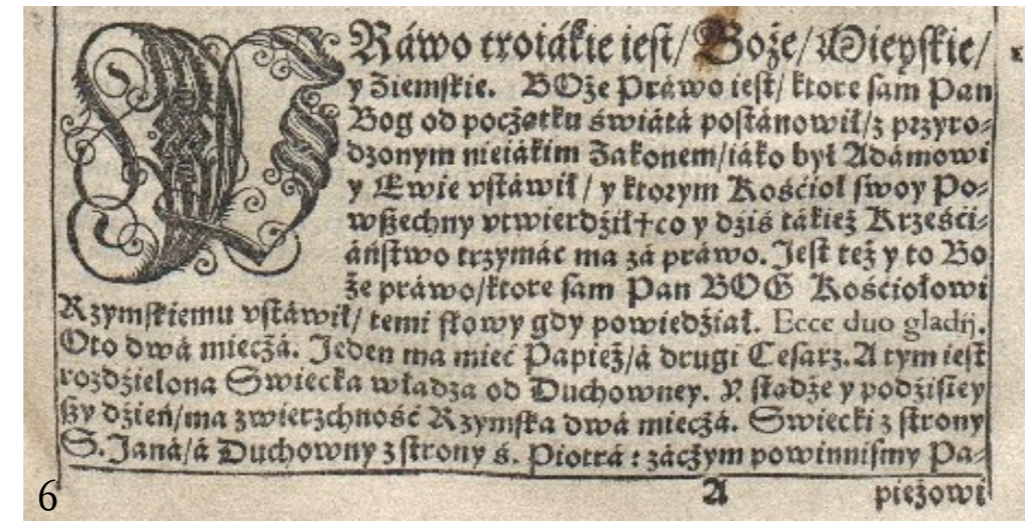 PRáwo troiákie iest/ Boże/ Mieyskie/
y Ziemskie. BOże Práwo iest/ ktore sam Pan
Bog od początku świátá postánowił/ z przyro⸗
dzonym nieiákim Zakonem/ iáko był Adámowi
y Ewie vstáwił/ y ktorym Kośćioł swoy Po⸗
wszechny vtwierdźił† co y dźiś tákież Krześći⸗
áństwo trzymáć ma zá práwo. Jest też y to Bo
że práwo/ ktore sam Pan BOG Kośćiołowi
Rzymskiemu vstáwił/ temi słowy gdy powiedźiał. Ecce duo gladij.
Oto dwá mieczá. Jeden ma mieć Papież/ á drugi Cesarz. A tym iest
rozdźielona Swiecka władza od Duchowney. Y stądże y podźiśiey
szy dźień/ ma zwierzchność Rzymska dwá mieczá. Swiecki z strony
S. Janá/ á Duchowny z strony ś. Piotrá: záczym powinnismy Pa⸗
A pieżowi
6